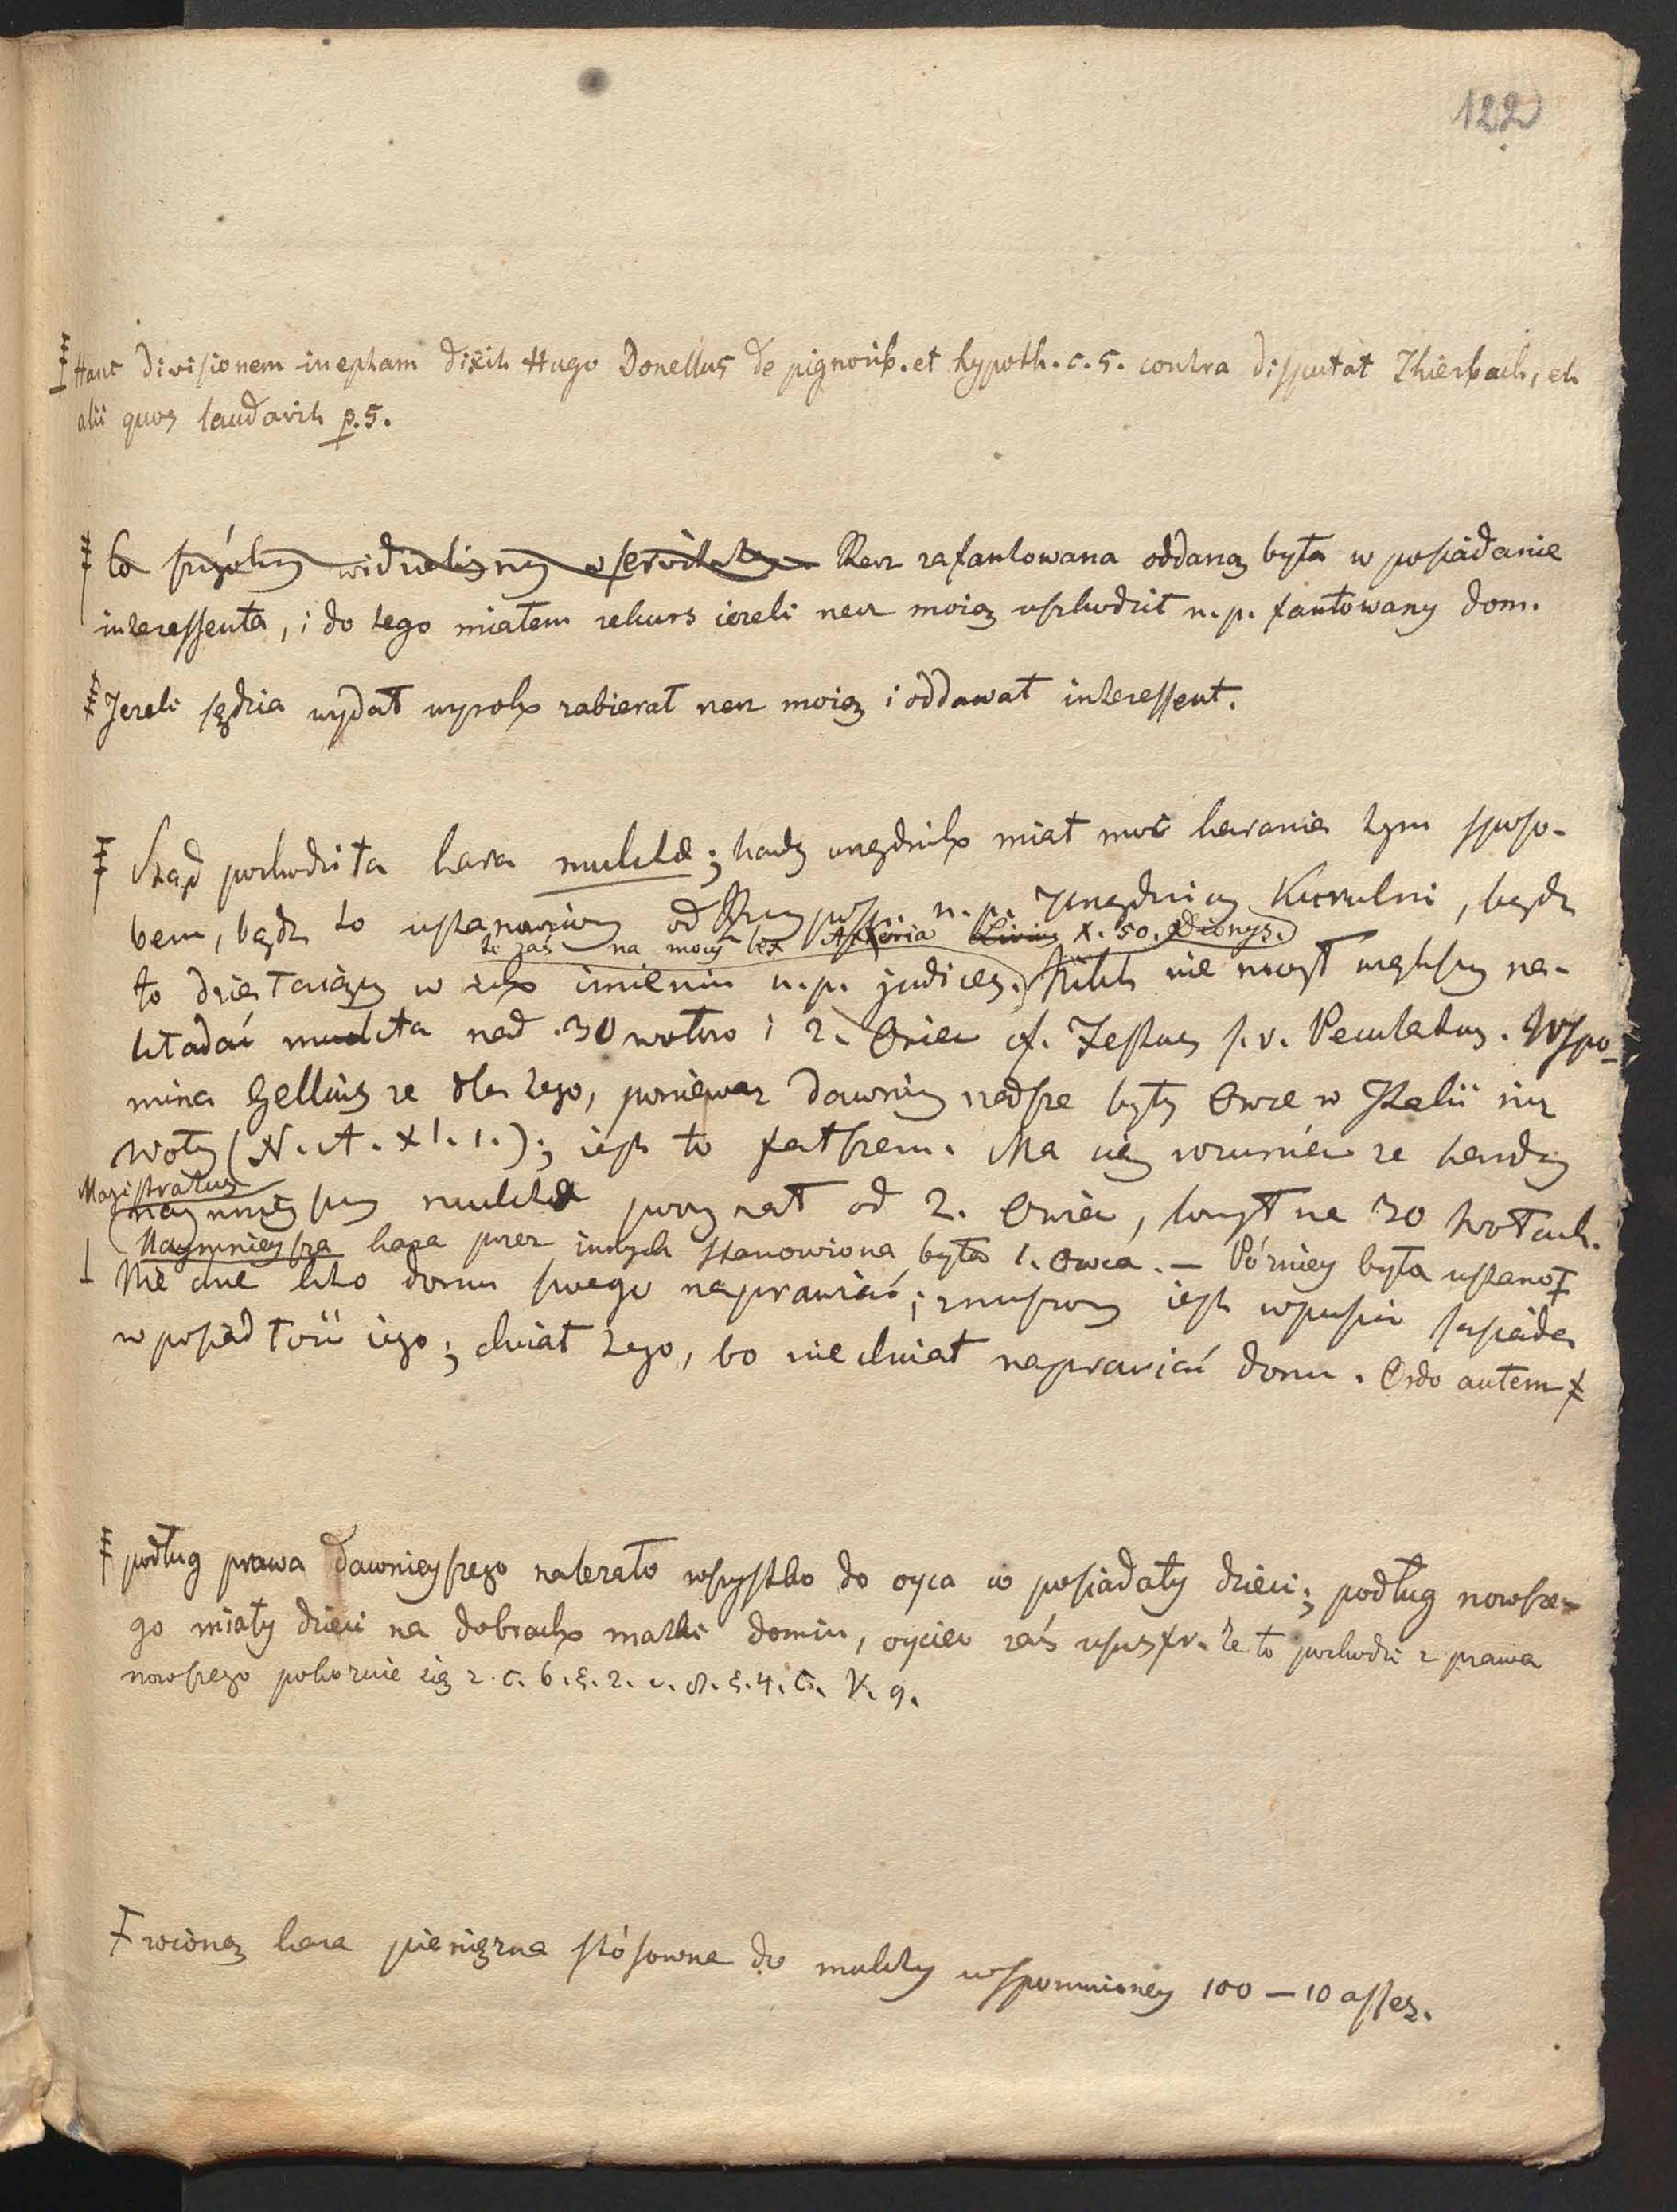 122
Hanc divisionem ineptam dixit Hugo Donellus de pignorib. et hypoth. c. 5. contra disputat Thierbach, et
alii quos laudavit p. 5.
Co Rzecz zafantowana oddaną była w posiadanie
interessenta, i do tego miałem rekurs ieżeli rzecz moią uszkodził n.p. fantowany dom.
Jeżeli sędzia wydał wyrok zabierał rzecz moią i oddawał interessent.
Ztąd pochodziła kara multae; każdy urzędnik miał moc karania tym sposo-
bem, bądź to ustanowiony od Rzeczyposp. n.p. Urzędnicy Kurulni, bądź
te zaś na mocy lex Atteria Livius X. 50. Dionys.
to działaiący w ich imieniu n.p. judices. Nikt nie mógł większey na-
kładać multa nad 30 wołów i 2. Owiec cf. Festus s.v. Peculatus. Wspo-
mina Gellius że dla tego, ponieważ dawniey rzadsze były Owce w Italii niż
Woły (N. A. XI. 1.); iest to fałszem. Ma się rozumieć że każdy
Magistratus
naymnieyszy multae poczynał od 2. Owiec, kończył na 30 Wołach.
Naymnieysza kara przez innych stanowiona była 1. Owca. – Późniey była ustano
Nie chce kto domu swego naprawiać; zmuszony iest wpuścić sąsiada
w posiadłość iego; chciał tego, bo nie chciał naprawiać domu. Ordo autem
podług prawa dawnieyszego należało wszystko do oyca co posiadały dzieci; podług nowsze-
go miały dzieci na dobrach matki domin, oyciec zaś ususfr. Że to pochodzi z prawa
nowszego pokazuie się z. c. 6. §. 2. c. 8. §. 4. C. V. 9.
wioną kara pieniężna stósowna do multy wspomnioney 100 – 10 asses.